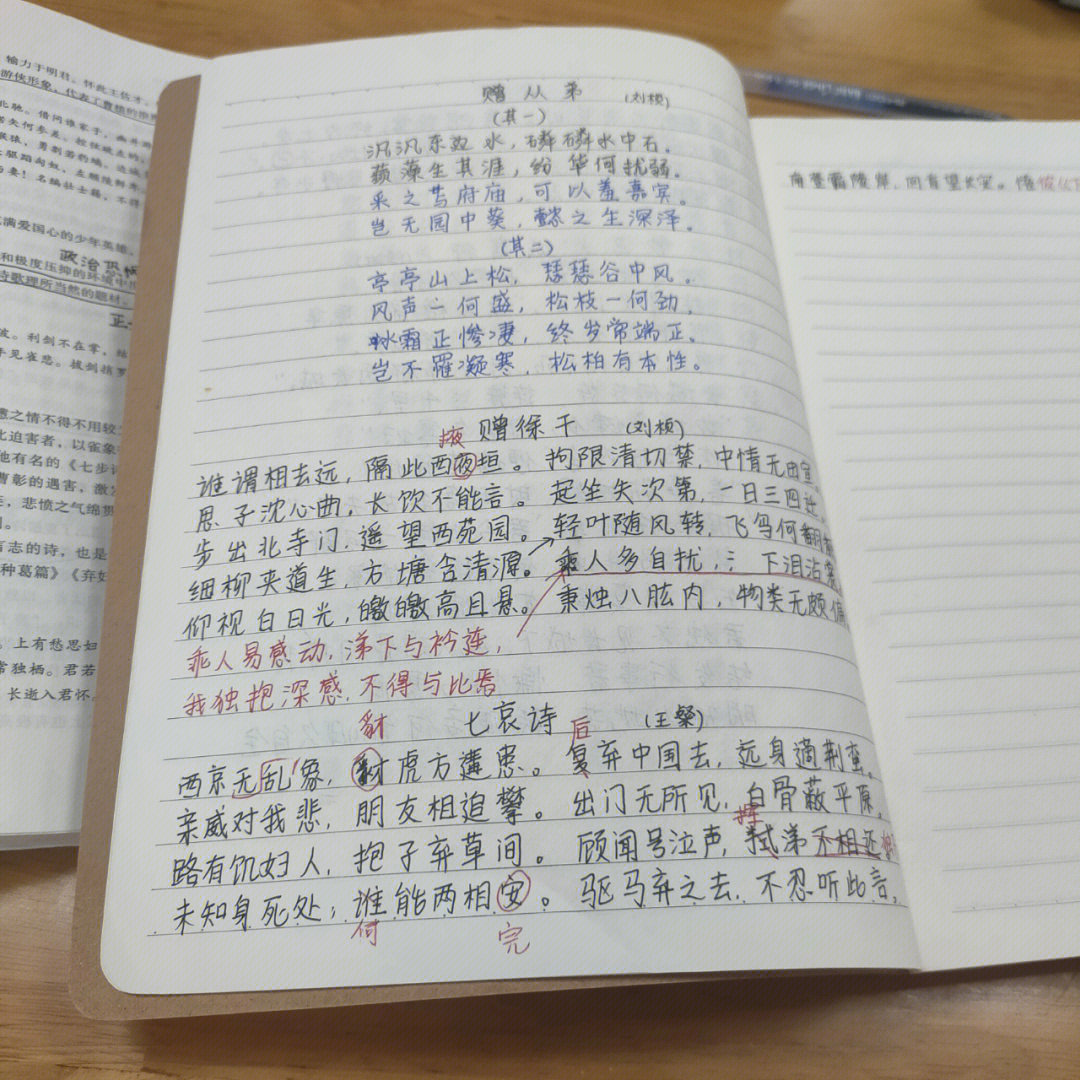 输力于明君。怀此王佐才，
游侠形象，代表了曹植的
北驰。借问谁家子，幽并游
宿昔秉良弓，楛矢何参差。控弦破左的，
猴猿，勇剽若豹螭。边城
驱蹈匈奴，左顾陵鲜卑。
妻！名编壮士籍，不得
满爱国心的少年英雄。
政治
和极度压抑的环境中
诗歌理所当然的题材。
波。利剑不在掌，结
见雀悲。拔剑捎罗
之情不得不用较
此迫害者，以雀象
他有名的《七步诗
曹彰的遇害，激
悲愤之气绵
言志的诗，也是
种葛篇》《弃妇
上有愁思妇
常独栖。君若
长逝入君怀。
赠从弟 (刘桢)
(其一)
汎汎东边水，磷磷水中石。
蘋藻生其涯，纷华何扰弱。
采之荐府庙，可以羞嘉宾。
岂无园中葵，懿之生深泽。
(其二)
亭亭山上松，瑟瑟谷中风。
风声一何盛，松枝一何劲，
冰霜正惨凄，终岁常端正。
岂不罹凝寒，松柏有本性。
掖 赠徐干 (刘桢)
谁谓相去远，隔此西夜垣。拘限清切禁，中情无由宣。
思子沈心曲，长饮不能言。起坐失次第，一日三四迁，
步出北寺门，遥望西苑园。轻叶随风转，飞鸟何翻
细柳夹道生，方塘含清源。乘人多自扰，：下泪沾
仰视白日光，皦皦高且悬。秉烛八肱内，物类无颇偏
乖人易感动，涕下与衿连，
我独抱深感，不得与比焉
豺 七哀诗 后 (王粲)
西京无乱象，豺虎方遘患。复弃中国去，远身適荆蛮。
亲戚对我悲，朋友相追攀。出门无所见，白骨蔽平原，
挥
路有饥妇人，抱子弃草间。顾闻号泣声，拭涕不相还
未知身死处；谁能两相安。驱马弃之去，不忍听此言，
何 完
南登霸陵岸，回首望长安。悟彼下